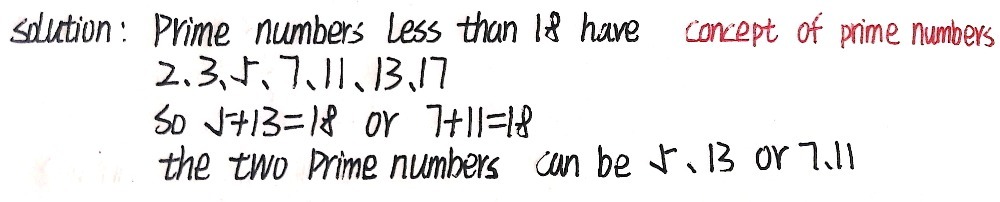 solution: Prime numbers less than 18 have concept of prime numbers
2、3、5、7、11、13、17
So 5+13=18 or 7+11=18
the two Prime numbers can be 5、13 or 7.11